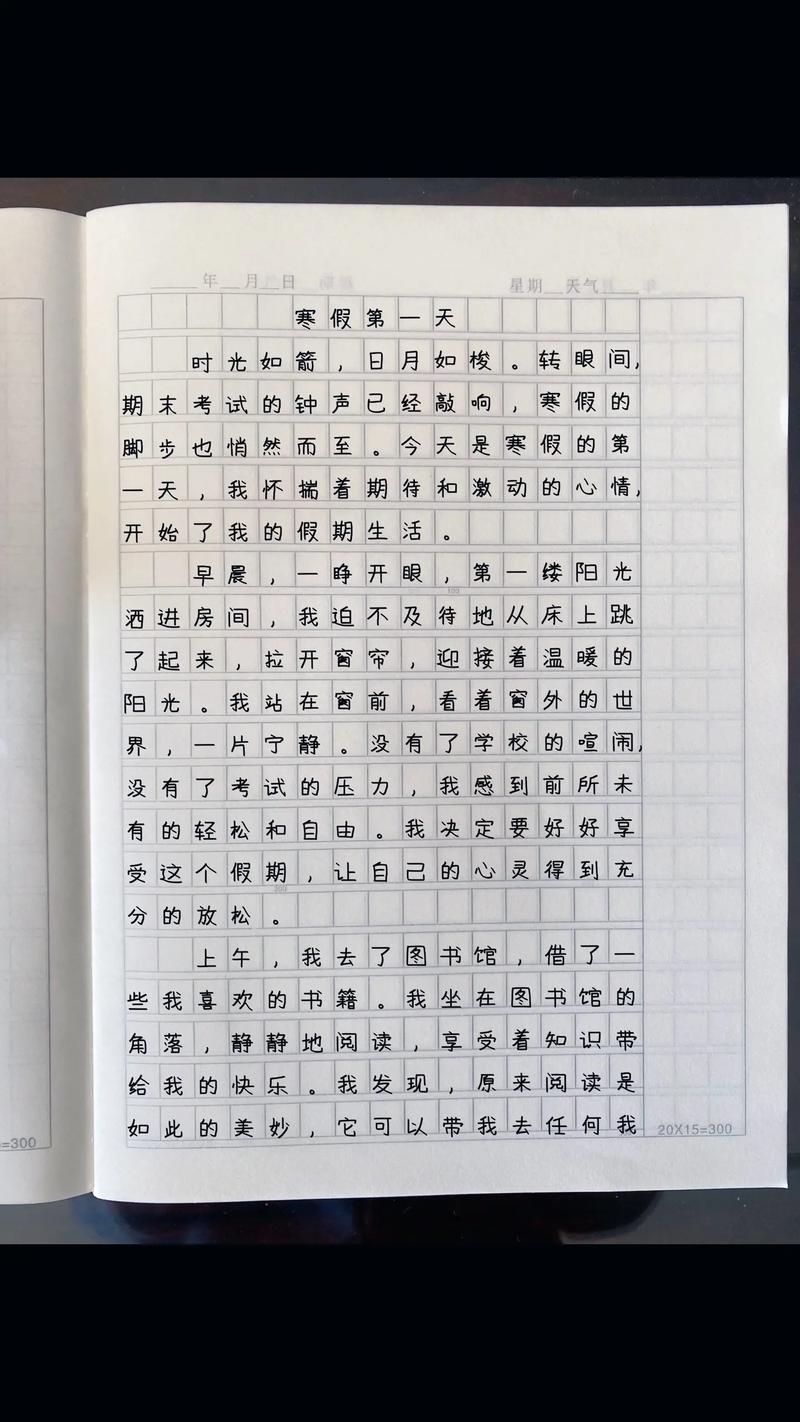 年 月 日
星期 天气
寒假第一天
时光如箭，日月如梭。转眼间，
期末考试的钟声已经敲响，寒假的
脚步也悄然而至。今天是寒假的第
一天，我怀揣着期待和激动的心情，
开始了我的假期生活。
早晨，一睁开眼，第一缕阳光
100
洒进房间，我迫不及待地从床上跳
了起来，拉开窗帘，迎接着温暖的
阳光。我站在窗前，看着窗外的世
界，一片宁静。没有了学校的喧闹，
没有了考试的压力，我感到前所未
有的轻松和自由。我决定要好好享
受这个假期，让自己的心灵得到充
200
分的放松。
上午，我去了图书馆，借了一
些我喜欢的书籍。我坐在图书馆的
角落，静静地阅读，享受着知识带
给我的快乐。我发现，原来阅读是
如此的美妙，它可以带我去任何我
20X15=300
=300